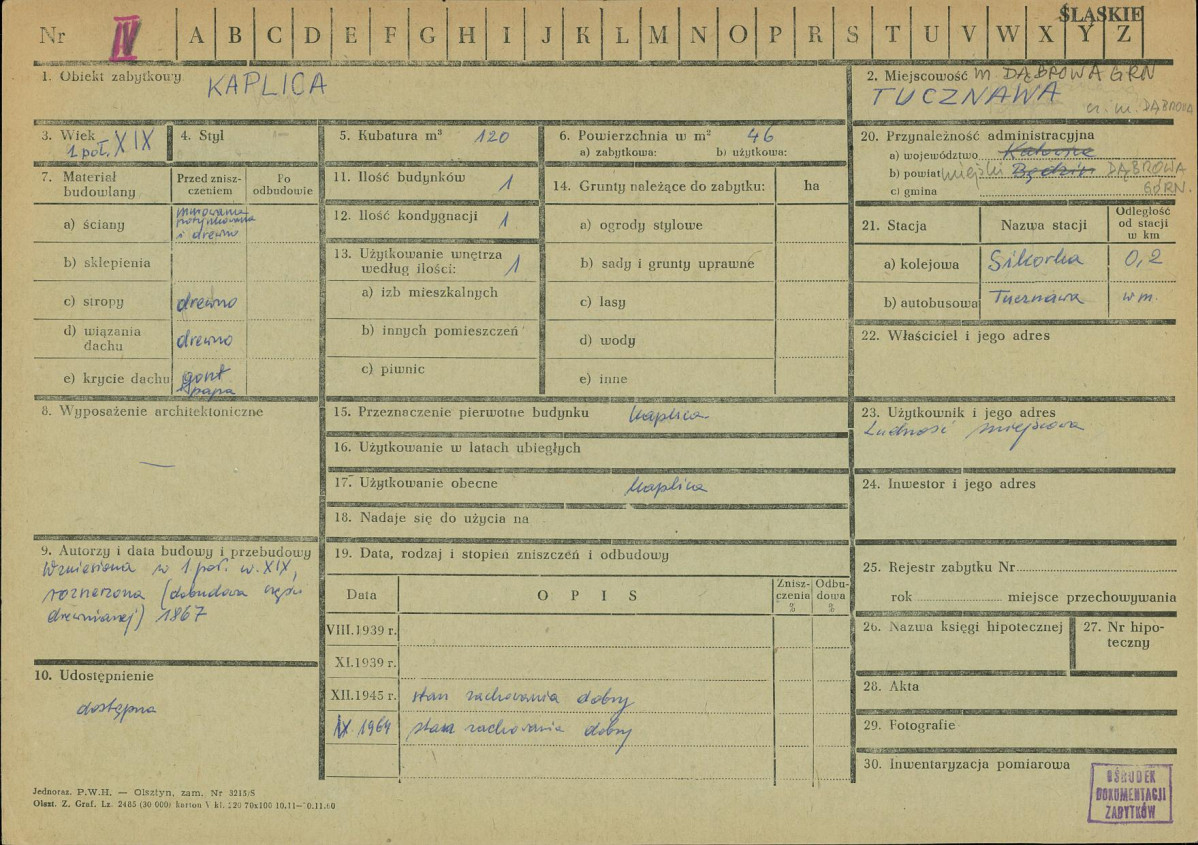 ŚLĄSKIE
Nr IV A B C D E F G H I J K L M N O P R S T U V W X Y Z
1. Obiekt zabytkowy KAPLICA
2. Miejscowość m DĄBROWA GRN
TUCZNAWA
m. DĄBROWA
3. Wiek
1 poł. XIX
4. Styl
5. Kubatura m³ 120
6. Powierzchnia w m² 46
a) zabytkowa: b) użytkowa:
7. Materiał budowlany
Przed zniszczeniem
Po odbudowie
a) ściany murowana potynkowana i drewno
b) sklepienia
c) stropy drewno
d) wiązania dachu drewno
e) krycie dachu gont papa
8. Wyposażenie architektoniczne
—
9. Autorzy i data budowy i przebudowy
Wzniesiona w 1 poł. w. XIX,
rozszerzona (dobudowa części
drewnianej) 1867
10. Udostępnienie
dostępna
11. Ilość budynków 1
12. Ilość kondygnacji 1
13. Użytkowanie wnętrza
według ilości: 1
a) izb mieszkalnych
b) innych pomieszczeń
c) piwnic
14. Grunty należące do zabytku: ha
a) ogrody stylowe
b) sady i grunty uprawne
c) lasy
d) wody
e) inne
15. Przeznaczenie pierwotne budynku kaplica
16. Użytkowanie w latach ubiegłych
17. Użytkowanie obecne kaplica
18. Nadaje się do użycia na
19. Data, rodzaj i stopień zniszczeń i odbudowy
Data OPIS Zniszczenia % Odbudowa %
VIII.1939 r.
XI.1939 r.
XII.1945 r. stan zachowania dobry
IX. 1964 stan zachowania dobry
20. Przynależność administracyjna
a) województwo Katowice
b) powiat miejski Będzin DĄBROWA
c) gmina GÓRN.
21. Stacja Nazwa stacji Odległość od stacji w km
a) kolejowa Sikorka 0,2
b) autobusowa Tucznawa w m.
22. Właściciel i jego adres
23. Użytkownik i jego adres
Ludność miejscowa
24. Inwestor i jego adres
25. Rejestr zabytku Nr
rok miejsce przechowywania
26. Nazwa księgi hipotecznej
27. Nr hipoteczny
28. Akta
29. Fotografie
30. Inwentaryzacja pomiarowa
OŚRODEK
DOKUMENTACJI
ZABYTKÓW
Jednoraz. P.W.H. — Olsztyn, zam. Nr 3215/S
Olszt. Z. Graf. Lz. 2485 (30 000) karton V kl. 220 70x100 10.11—